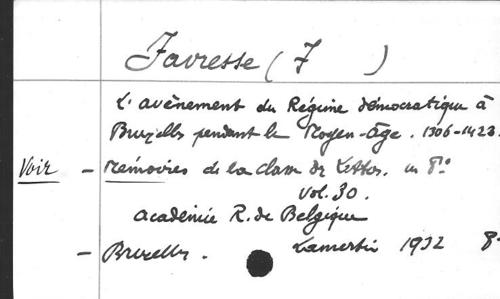 Favresse (F )
L'avènement du Régime démocratique à
Bruxelles pendant le Moyen-âge. 1306-1423.
Voir - Mémoires de la classe des Lettres. in 8º
Vol. 30.
Académie R. de Belgique
- Bruxelles. Lamertin 1932 8-